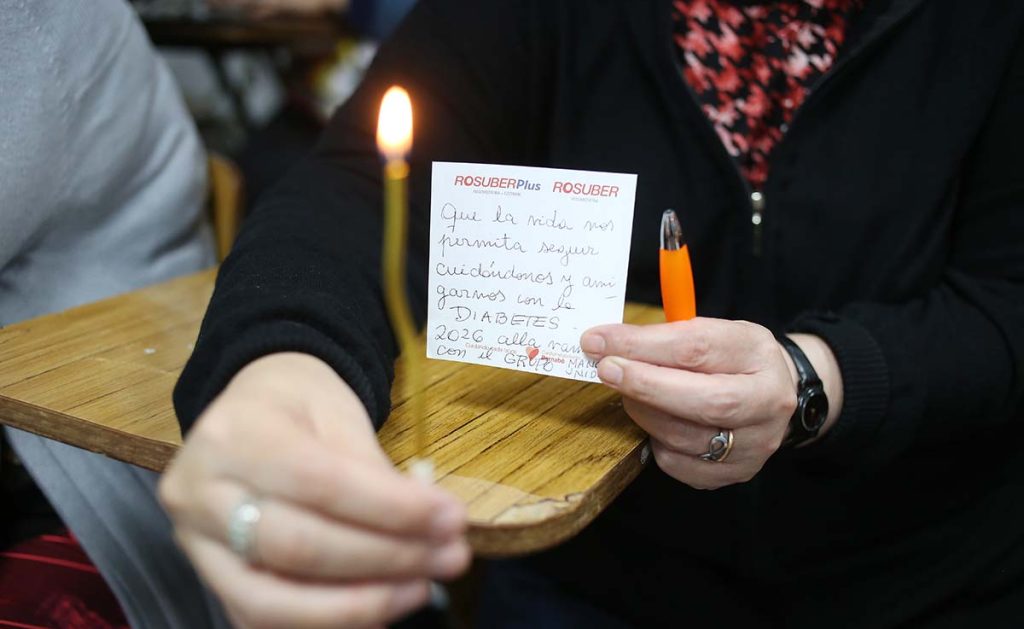 ROSUBERPlus ROSUBER
Que la vida nos
permita seguir
cuidándonos y ami
garnos con la
DIABETES -
2026 alla vam
Cuidando cada
con el GRUPO MANO
Bernabó
UNID